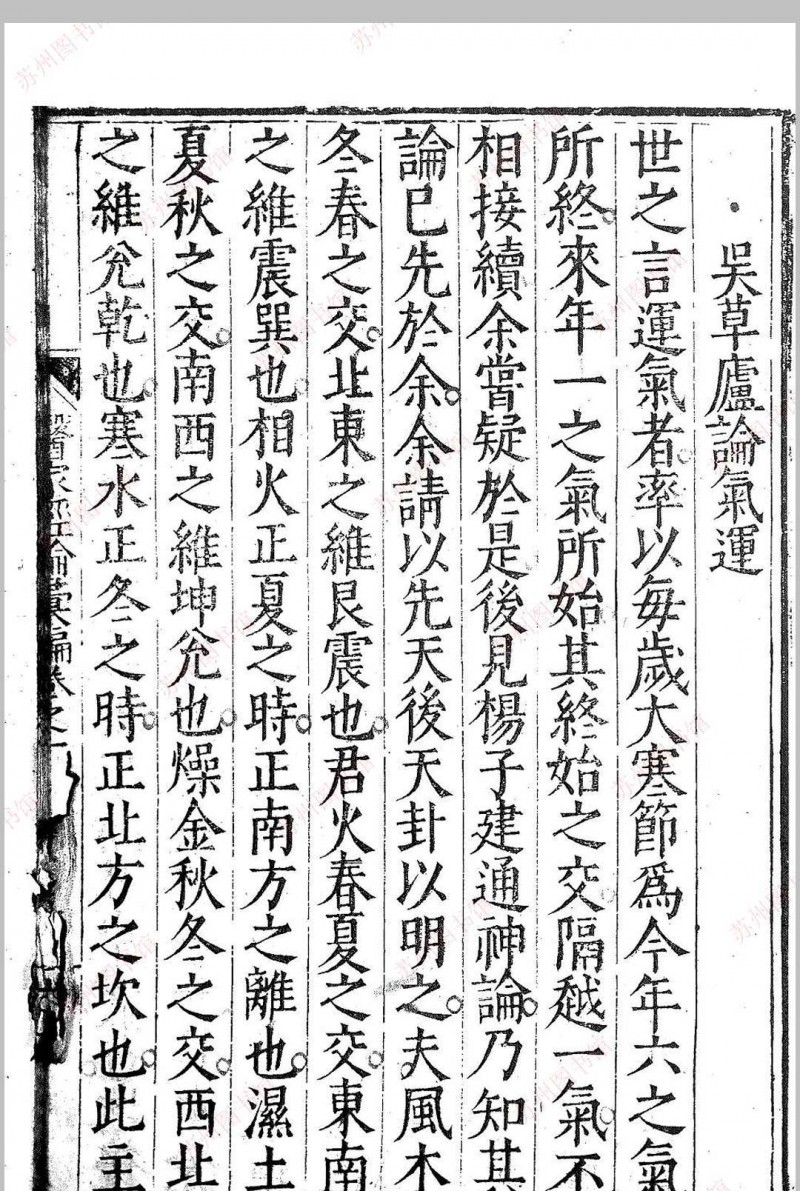 吳草廬論氣運
世之言運氣者率以每歲大寒節爲今年六之氣
所終來年一之氣所始其終始之交隔越一氣不
相接續余嘗疑於是後見楊子建通神論乃知其
論已先於余余請以先天後天卦以明之夫風木
冬春之交北東之維艮震也君火春夏之交東南
之維震巽也相火正夏之時正南方之離也濕土
夏秋之交南西之維坤兊也燥金秋冬之交西北
之維兊乾也寒水正冬之時正北方之坎也此主
醫家經論彙編卷之一
苏州图书馆